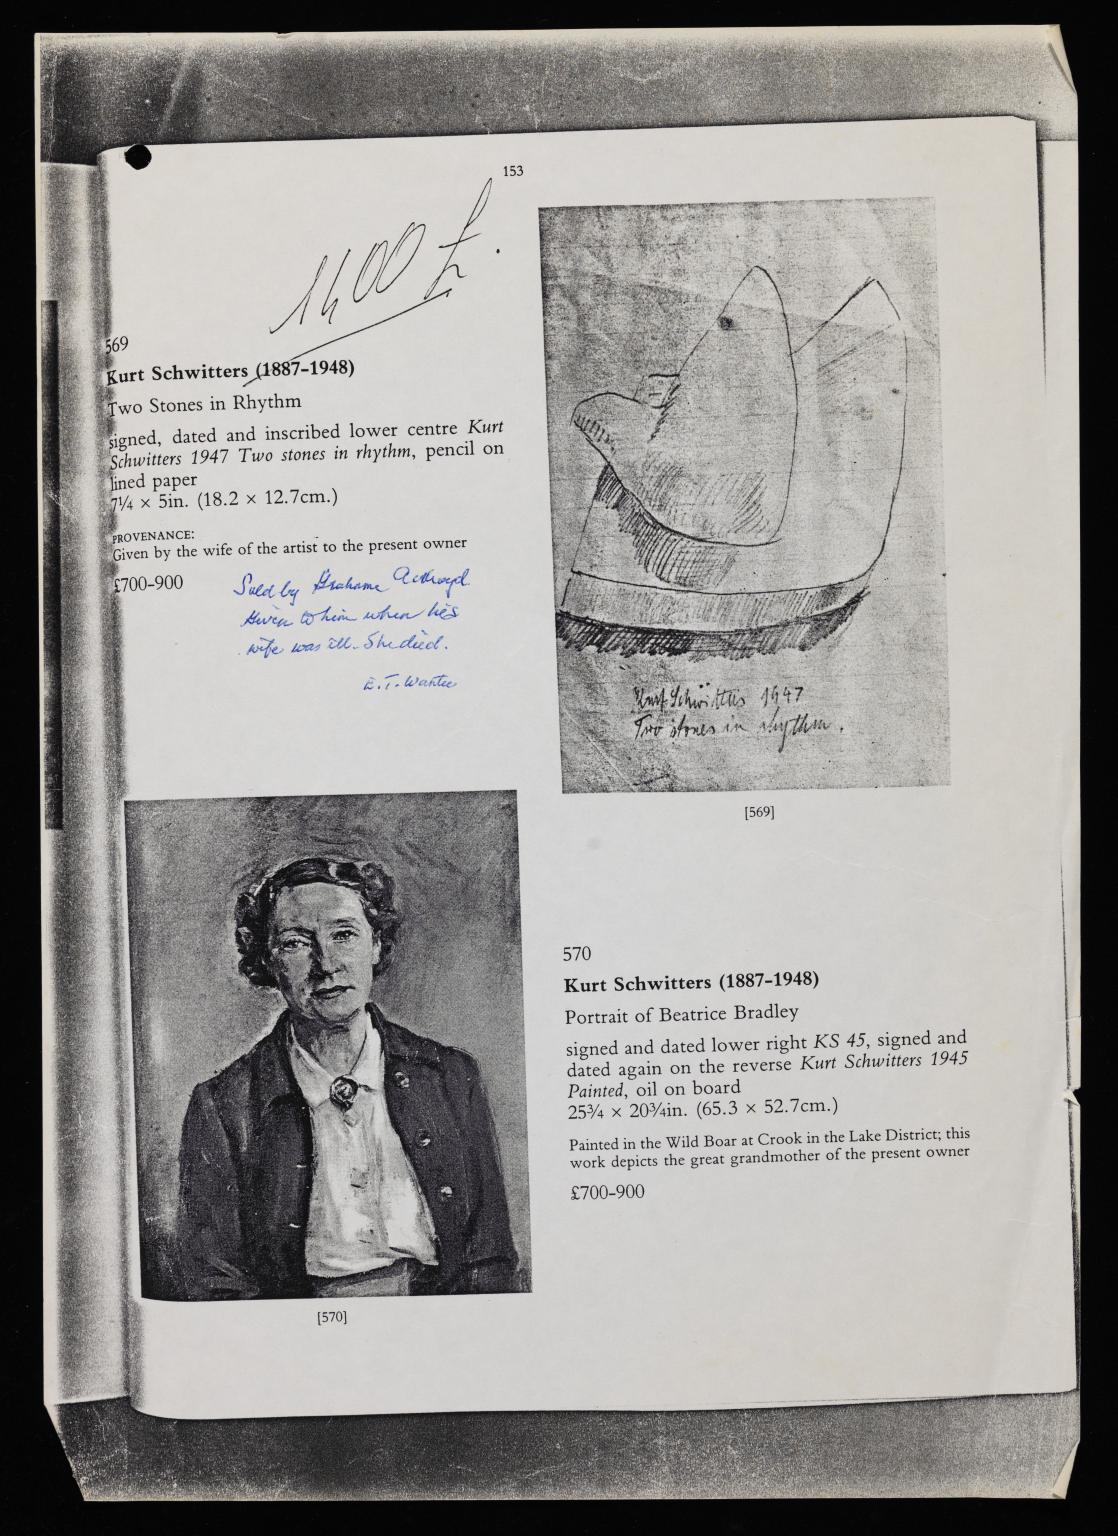 153
1400 £.
569
Kurt Schwitters (1887–1948)
Two Stones in Rhythm
signed, dated and inscribed lower centre Kurt
Schwitters 1947 Two stones in rhythm, pencil on
lined paper
7¼ × 5in. (18.2 × 12.7cm.)
PROVENANCE:
Given by the wife of the artist to the present owner
£700–900
Sold by Grahame Ackroyd.
Given to him when his
wife was ill. She died.
E.T. Wantee
Kurt Schwitters 1947
Two stones in rhythm.
[569]
570
Kurt Schwitters (1887–1948)
Portrait of Beatrice Bradley
signed and dated lower right KS 45, signed and
dated again on the reverse Kurt Schwitters 1945
Painted, oil on board
25¾ × 20¾in. (65.3 × 52.7cm.)
Painted in the Wild Boar at Crook in the Lake District; this
work depicts the great grandmother of the present owner
£700–900
[570]